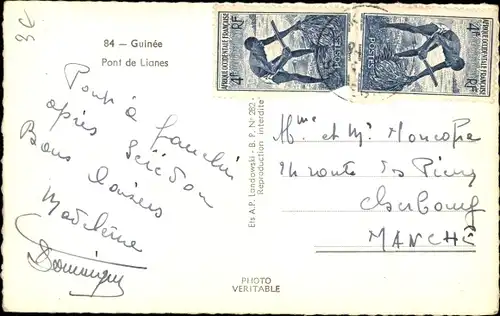 3€
84 — Guinée
Pont de Lianes
Pont à franchir
après
Bons baisers
Madeleine
Dominique
Ets A.P. Landowski - B. P. N° 282 -
Reproduction interdite
PHOTO
VERITABLE
4F AFRIQUE OCCIDENTALE FRANÇAISE RF
POSTES
4F AFRIQUE OCCIDENTALE FRANÇAISE RF
POSTES
Mme et Mr
route des
Cherbourg
MANCHE